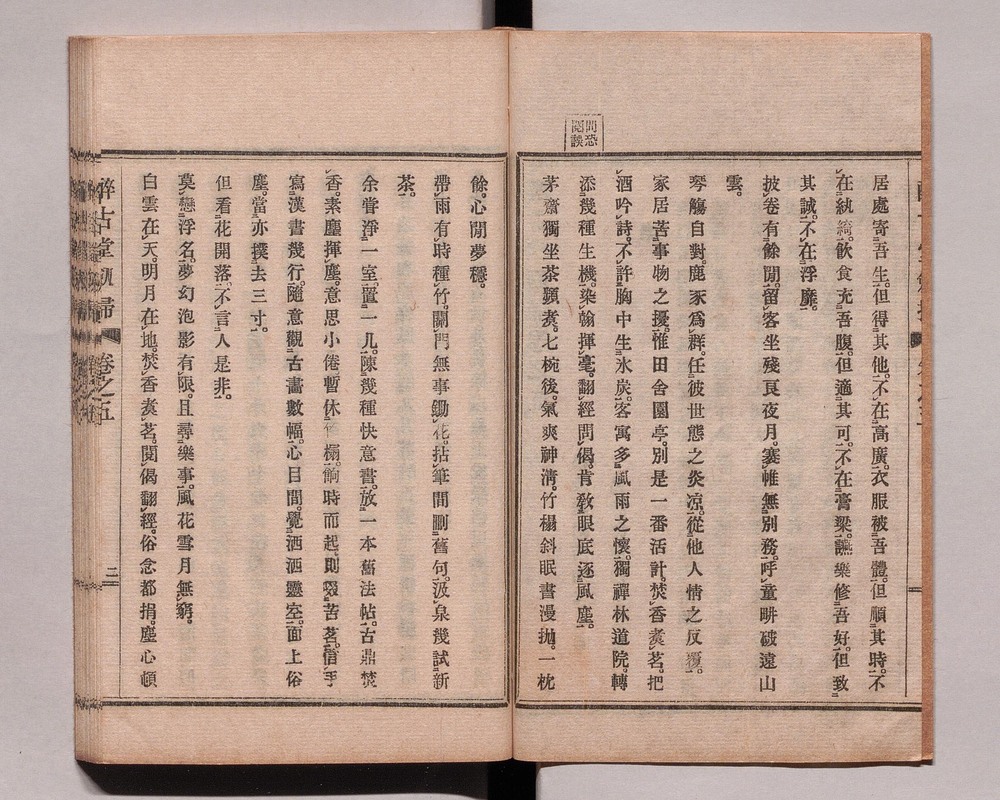 間恐
閱誤
居處寄吾生。但得其他。不在高廣。衣服被吾體。但順其時。不
在紈綺。飲食充吾腹。但適其可。不在膏粱。讌樂修吾好。但致
其誠。不在浮靡。
披卷有餘閒。留客坐殘良夜月。褰帷無別務。呼童畊破遠山
雲。
琴觴自對。鹿豕爲群。任彼世態之炎凉。從他人情之反覆。
家居苦事物之擾。惟田舍園亭。別是一番活計。焚香煑茗。把
酒吟詩。不許胸中生氷炭。客寓多風雨之懷。獨禪林道院。轉
添幾種生機。染翰揮毫。翻經問偈。肯敎眼底逐風塵。
茅齋獨坐茶頻煑。七椀後。氣爽神淸。竹榻斜眠書漫拋。一枕
餘。心閒夢穩。
帶雨有時種竹。關門無事鋤花。拈筆間刪舊句。汲泉幾試新
茶。
余嘗淨一室。置一几。陳幾種快意書。放一本舊法帖。古鼎焚
香。素麈揮塵。意思小倦。暫休 榻。餉時而起。則啜苦茗。信手
寫漢書幾行。隨意觀古畵數幅。心目間。覺洒洒靈空。面上俗
塵。當亦撲去三寸。
但看花開落。不言人是非。
莫戀浮名。夢幻泡影有限。且尋樂事。風花雪月無窮。
白雲在天。明月在地。焚香煑茗。閱偈翻經。俗念都捐。塵心頓
醉古堂劍掃
卷之五
二